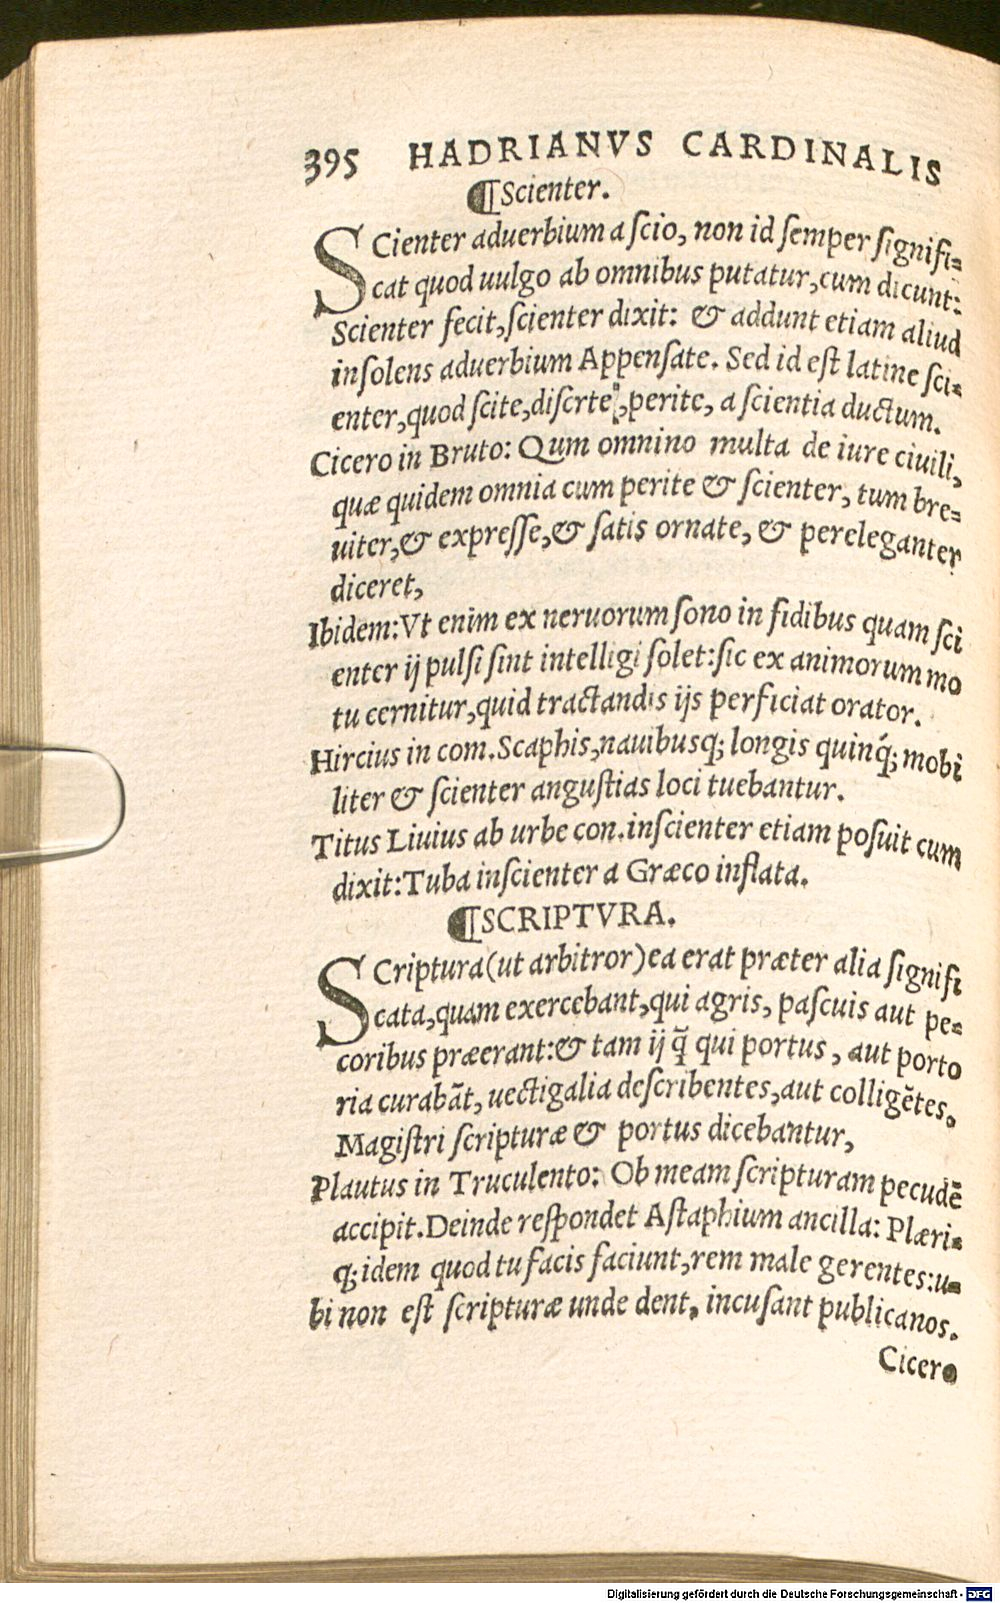 395 HADRIANVS CARDINALIS
¶Scienter.
SCienter aduerbium a ſcio, non id ſemper ſignifi-
cat quod uulgo ab omnibus putatur, cum dicunt:
Scienter fecit, ſcienter dixit: & addunt etiam aliud
inſolens aduerbium Appenſate. Sed id eſt latine ſci-
enter, quod ſcite, diſcrte, perite, a ſcientia ductum.
Cicero in Bruto: Qum omnino multa de iure ciuili,
quæ quidem omnia cum perite & ſcienter, tum bre-
uiter, & expreſſe, & ſatis ornate, & pereleganter
diceret,
Ibidem: Vt enim ex neruorum ſono in fidibus quam ſci
enter ij pulſi ſint intelligi ſolet: ſic ex animorum mo
tu cernitur, quid tractandis ijs perficiat orator.
Hircius in com. Scaphis, nauibusq; longis quinq́; mobi
liter & ſcienter anguſtias loci tuebantur.
Titus Liuius ab urbe con. inſcienter etiam poſuit cum
dixit: Tuba inſcienter a Græco inflata.
¶SCRIPTVRA.
SCriptura (ut arbitror) ea erat præter alia ſignifi
cata, quam exercebant, qui agris, paſcuis aut pe-
coribus præerant: & tam ij q̃ qui portus, aut porto
ria curabāt, uectigalia deſcribentes, aut colligētes.
Magiſtri ſcripturæ & portus dicebantur,
Plautus in Truculento: Ob meam ſcripturam pecudē
accipit. Deinde reſpondet Aſtaphium ancilla: Plæri-
q; idem quod tu facis faciunt, rem male gerentes: u-
bi non eſt ſcripturæ unde dent, incuſant publicanos.
Cicero
Digitalisierung gefördert durch die Deutsche Forschungsgemeinschaft - DFG